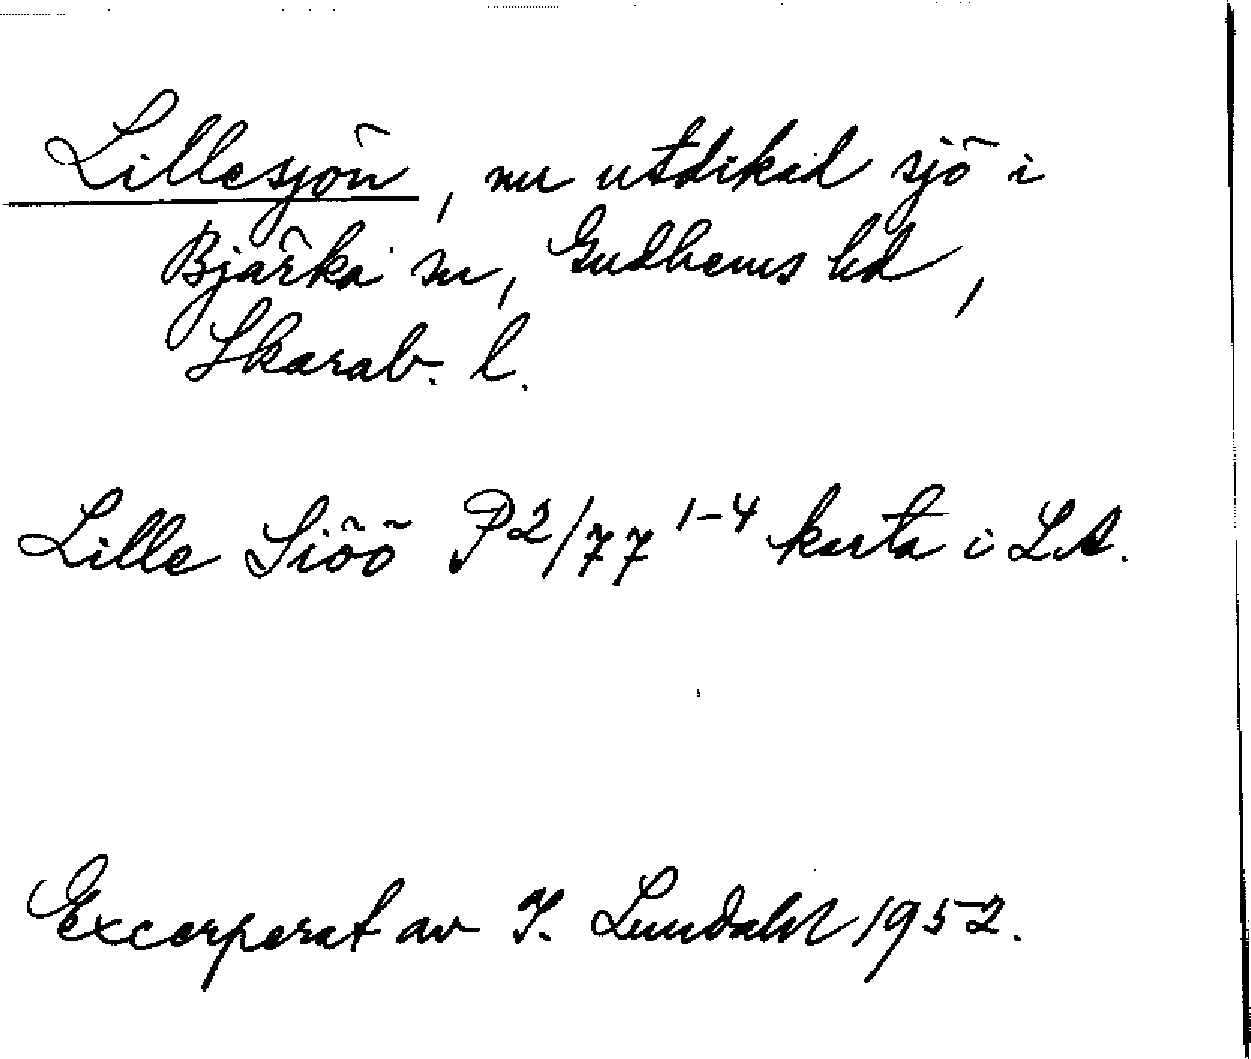 Lillesjön, nu utdikad sjö i
Bjärka sn, Gudhems hd,
Skarab. l.
Lille Siöö P2/77 1-4 karta i L.A.
Excerperat av I. Lundahl 1952.